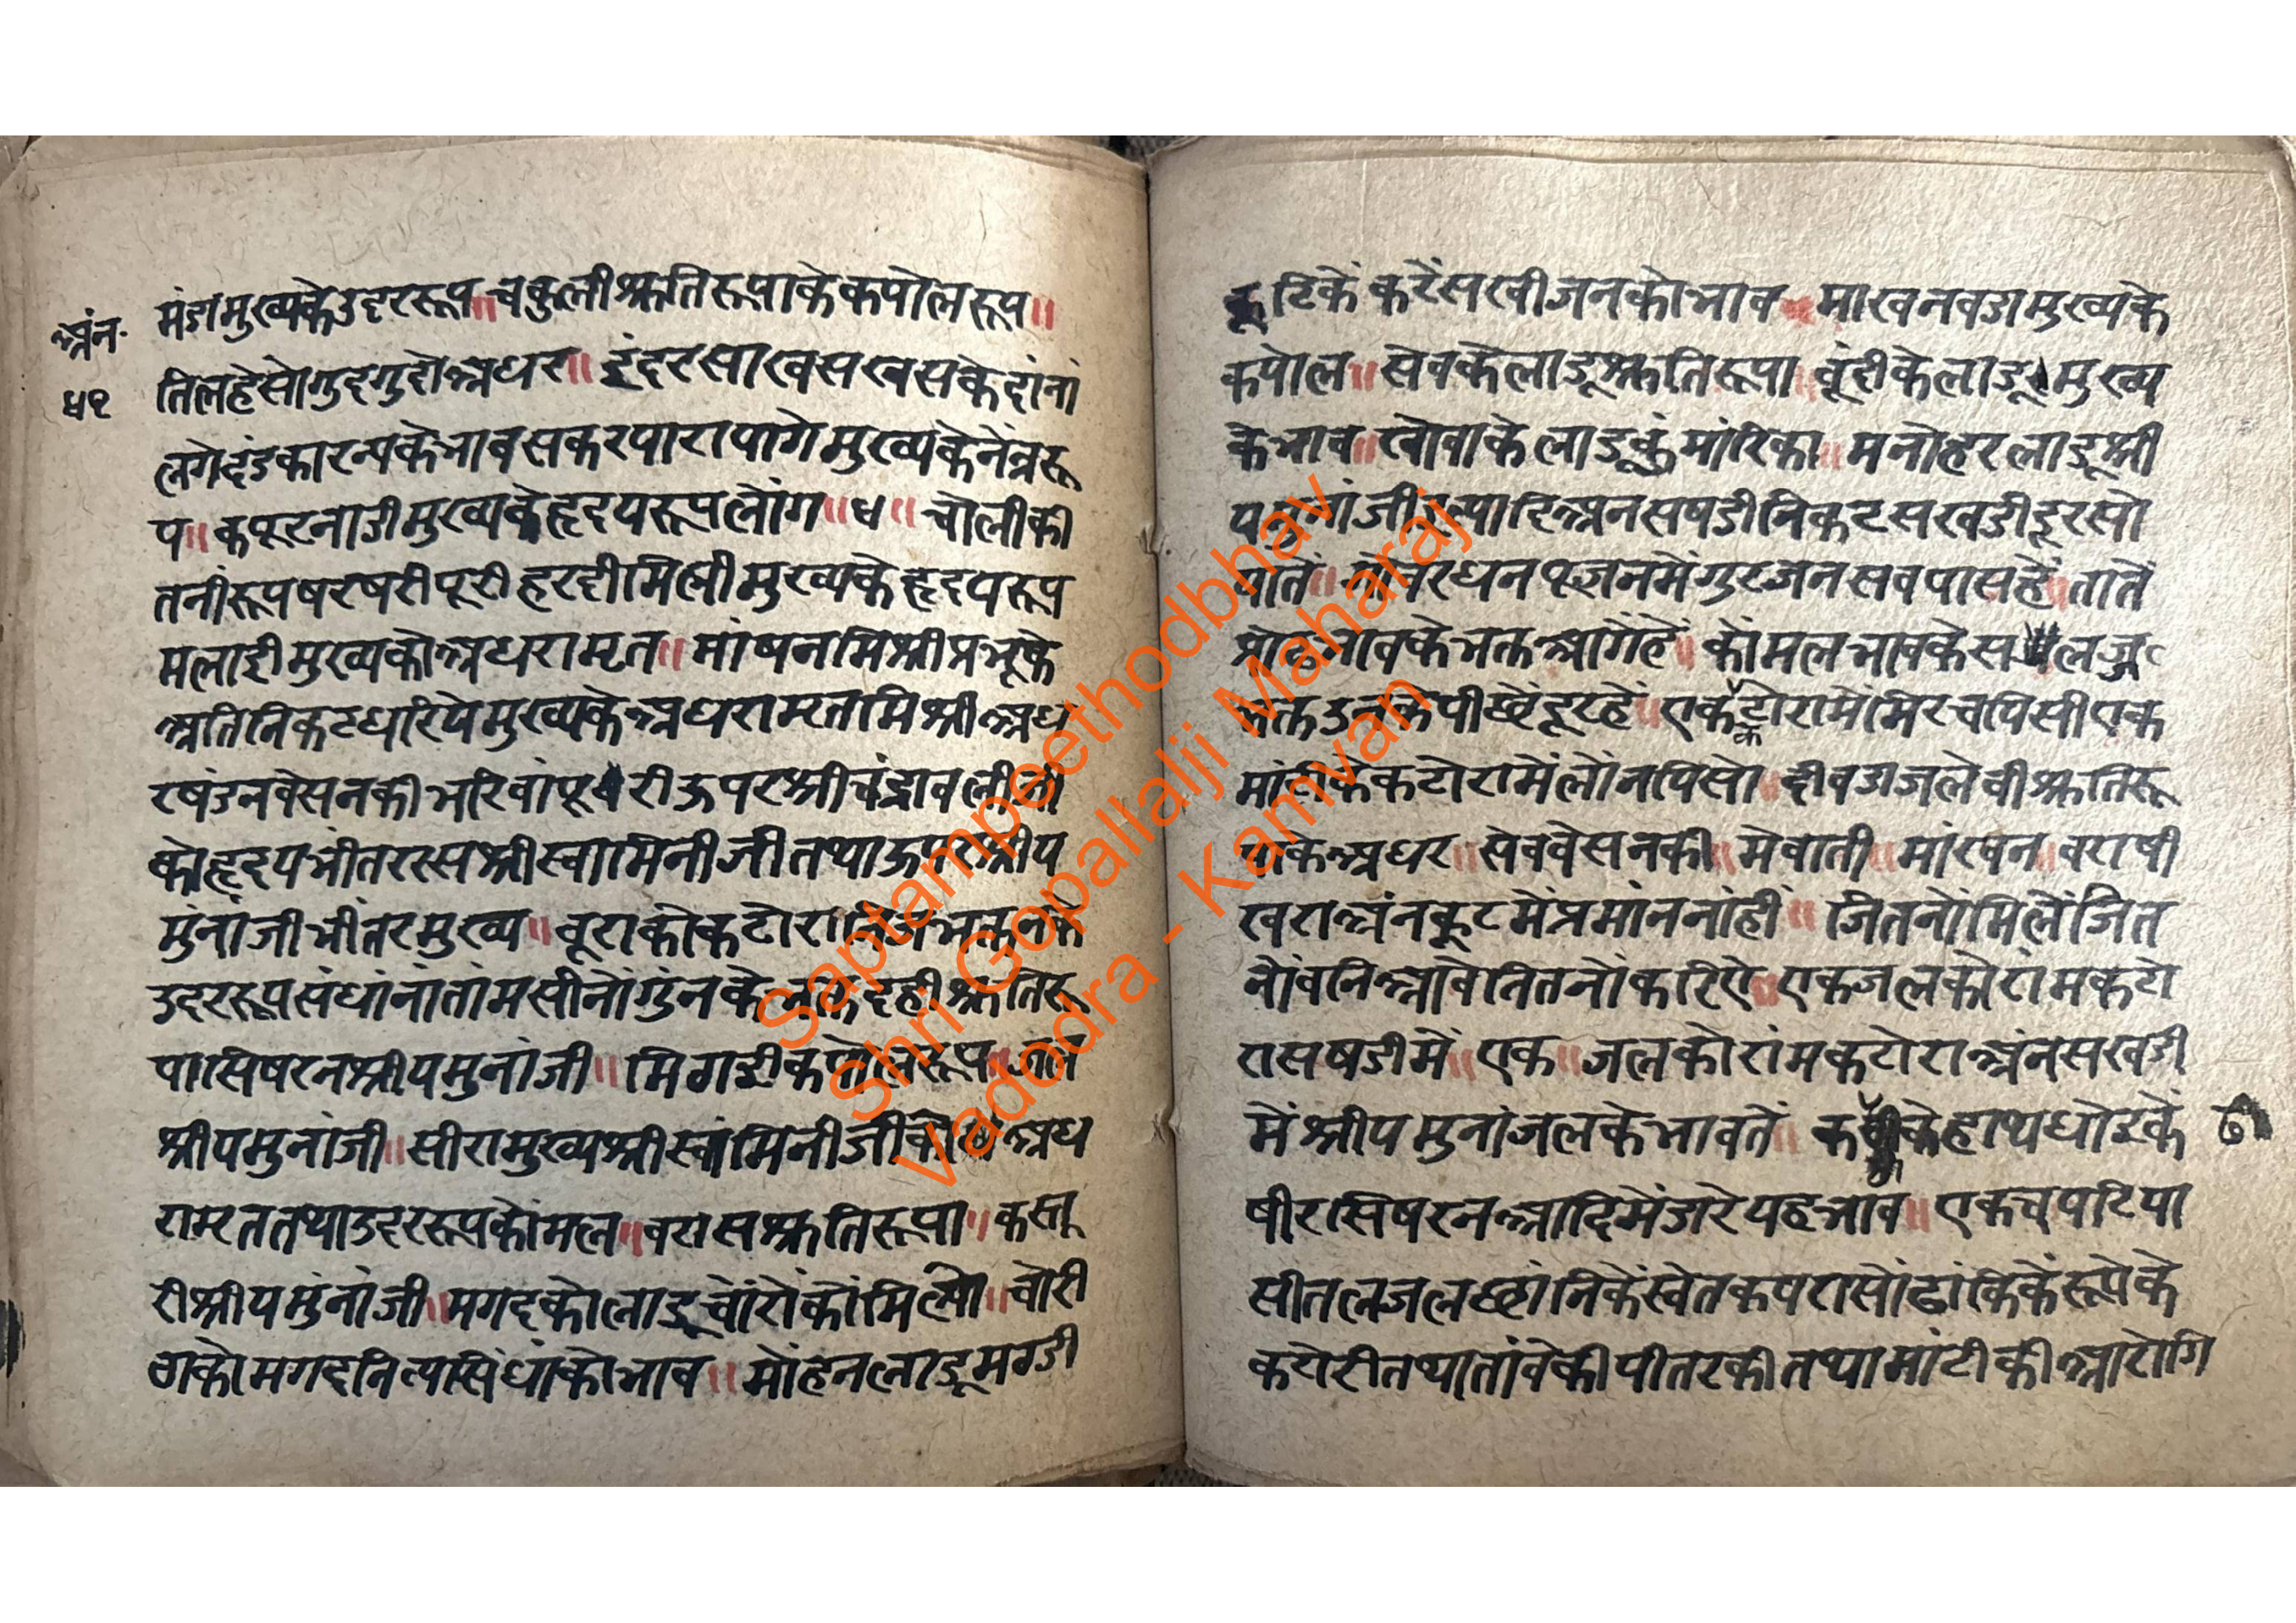 अंन॰
५१
मंडा मुख्यके उदर रूप ॥ चकुली श्रुतिरूपाके कपोल रूप ॥
तिलहे सो गुदगुदो अधर ॥ इंदरसा खेसखसके दांनां
लगे दंडकारन्यके भाव सकरपारा पागे मुख्यके नेत्र रू
प ॥ कपूरनाडी मुख्यके हृदय रूप लोंग ॥ ५ ॥ चोलीकी
तनीं रूप षरषरी पूरी हरदी मिश्री मुख्यके हृदय रूप
मलाई मुख्यको अधरामृत ॥ मांषन मिश्री प्रभूके
अति निकट धरिये मुख्यके अधरामृत मिश्री अध
रषंडन वेसनकी भरिवां पूरी ऊपर श्रीचंद्रावलीजी
को हृदय भीतर रस श्रीस्वामिनीजी तथा ऊपर श्रीय
मुंनांजी भींतर मुख्य ॥ बूराको कटोरा
उदर रूप संधांनां तांमसी नों गुंनके भक्त दही श्रुतिरू
पा सिषरन श्रीयमुनांजी ॥ मिगडी कपोल रूप ॥
श्रीयमुनांजी ॥ सीरा मुख्य श्रीस्वांमिनीजीको अध
रामृत तथा उदर रूप कोंमल ॥ वरास श्रुतिरूपा ॥ कस्तू
री श्रीयमुंनांजी ॥ मगदको लाडू चोंरों कों मिल्यो ॥ चोरी
ठाको मगद नित्यसिधांको भाव ॥ मोंहन लाडू मगडी
कूटिकें करें सखीजनको भाव माखनवडा मुख्यके
कपोल ॥ सेवके लाडू श्रुतिरूपा बूंदीके लाडू मुख्य
के भाव ॥ खोवाके लाडू कुंमारिका ॥ मनोहर लाडू श्री
यमुनांजी इत्यादि अनसषडी निकट सखडी दूर सो
यातें गोवरधन पूजनमें गुरजन सव पास हें ॥ तातें
प्रोढ भावके भक्त आगें हें ॥ कोंमल भावके सलज्ज
भक्त उनके पीछें दूर हें ॥ एक कटोरामें मिरच पिसी एक
मांटीके कटोरामें लोंन पिसो दीवडा जलेवी श्रुतिरू
पाके अधर ॥ सेव वेसनकी ॥ मेवाती ॥ मांखन ॥ वराषी
खरा अंनकूटमें प्रमांन नांहीं ॥ जितनों मिलें जित
नों वनि आवे तितनों करिऐ ॥ एक जलको रांमकटो
रा सषडीमें ॥ एक ॥ जलको रांमकटोरा अंनसखडी
में श्रीयमुनांजलके भावतें ॥ के हाथ धोइकें
षीर सिषरन आदिमें डारे यह भाव ॥ एक चपटिया
सीतल जल छांनिकें स्वेत कषरासों ढांकिकें रूपेके
कटोरी तथा तांवेकी पीतरकी तथा मांटीकी आरोगि